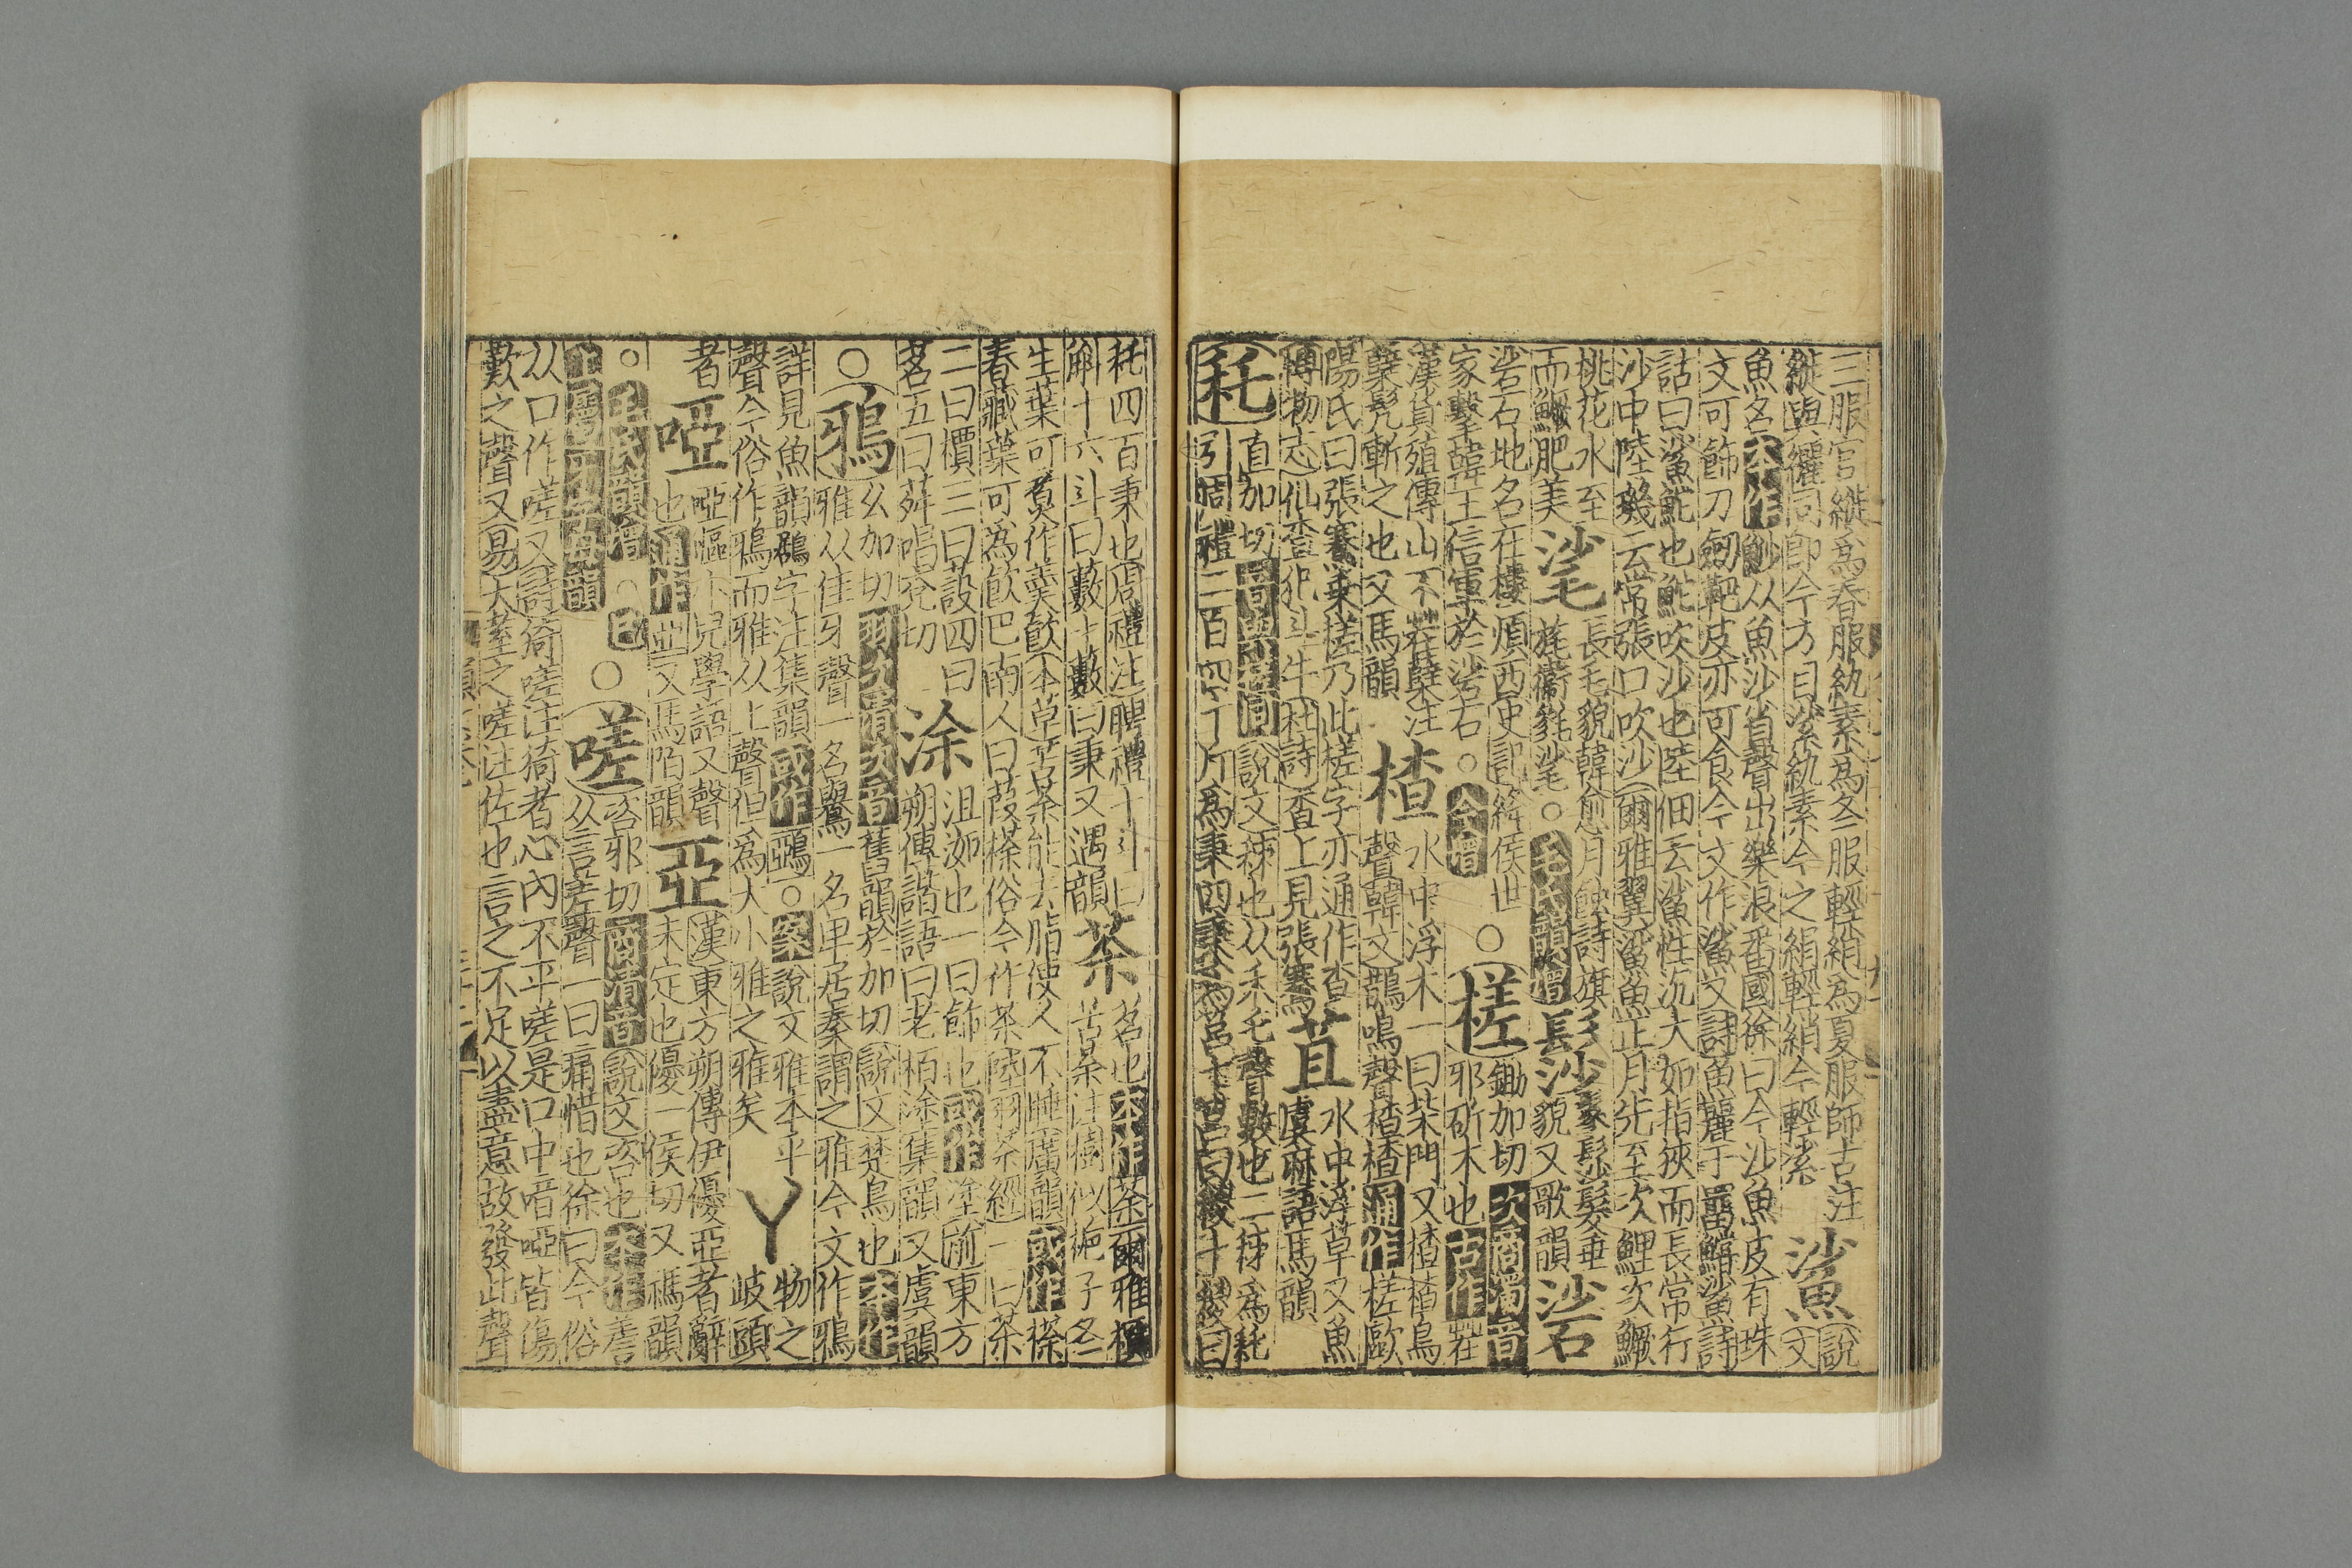 三服官縰為春服紈素為冬服輕綃為夏服師古注
縰與纚同即今方目紗紈素今之絹輕綃今輕紗
鯊
說
文
魚名本作魦从魚沙省聲出樂浪番國徐曰今沙魚皮有珠
文可飾刀劒靶皮亦可食今文作鯊又詩魚麗于罶鱨鯊魚詩
詁曰鯊鮀也鮀吹沙也陸佃云鯊性沉大如指狹而長常行
沙中陸璣云常張口吹沙爾雅翼鯊魚正月先至次鯉次鱖
桃花水至
而鱖肥美
毟
長毛貌韓愈月蝕詩旗
旄衞毿毟○毛氏韻增
髿
髟髿髮垂
貌又歌韻
砂
砂石地名在樓煩西史記絳侯世
家擊韓王信軍於沙石○今增
○槎
鋤加切次商濁音
邪斫木也古作茬
漢貨殖傳山不茬櫱注
櫱髡斬之也又馬韻
楂
水中浮木一曰柴門又楂楂鳥
聲韓文鵲鳴聲楂楂通作槎歐
陽氏曰張騫乗槎乃此槎字亦通作查
博物志仙查犯斗牛杜詩查上見張騫
苴
水中浮草又魚
虞麻語馬韻
秅
直加切
說文秭也从禾乇聲數也二秭為秅
引周禮二百四十斤為秉四秉曰筥十筥曰稯十稯曰
秅四百秉也周禮注聘禮十斗曰
斛十六斗曰藪十藪曰秉又遇韻
茶
茗也本作荼爾雅檟
苦荼注樹似梔子冬
生葉可煑作羹飮本草苦荼能去脂使人不睡廣韻或作㯡
春藏葉可為飮巴南人曰葭㯡俗今作茶陸羽茶經一曰茶
二曰檟三曰蔎四曰
茗五曰荈唱兗切
涂
沮洳也一曰飾也或作塗前東方
朔傳諧語曰老栢涂集韻又虞韻
○鴉
幺加切羽次清次音舊韻於加切說文楚烏也本作
雅从隹牙聲一名鸒一名卑居秦謂之雅今文作鴉
詳見魚韻鵶字注集韻或作鵶○案說文雅本平
聲今俗作鴉而雅从上聲但為大小雅之雅矣
丫
物之
岐頭
者
啞
啞嘔小兒學語又聲
也通作亞又馬陌韻
亞
漢東方朔傳伊優亞者辭
未定也優一侯切又禡韻
○毛氏韻增○已
○嗟
咨邪切商清音說文咨也本作𧪢
从言差聲一曰痛惜也徐曰今俗
从口作嗟又詩猗嗟注猗者心內不平嗟是口中喑啞皆傷
歎之聲又易大耋之嗟注佐也言之不足以盡意故發此聲